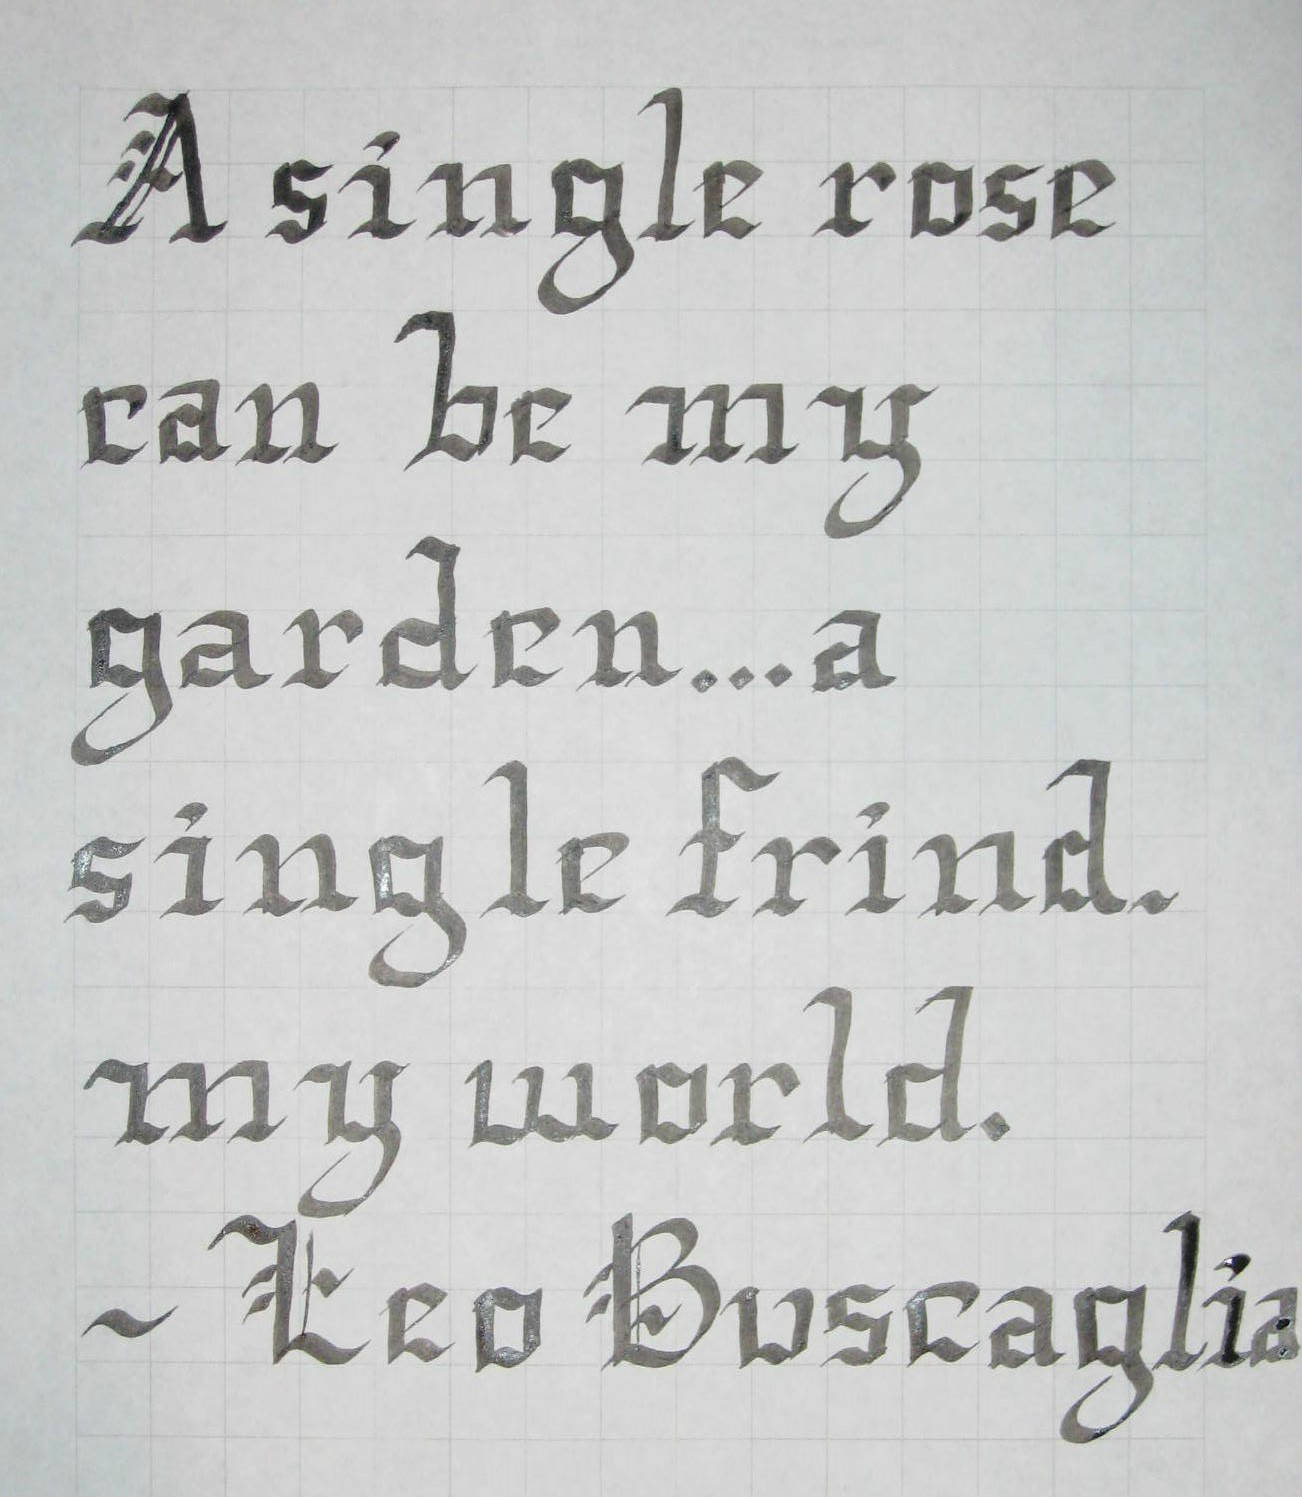 A single rose
can be my
garden...a
single frind.
my world.
~ Leo Buscaglia